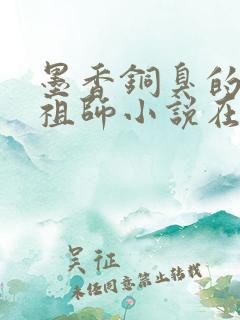 墨香铜臭的
祖师小说在
吴征
未经同意禁止转载